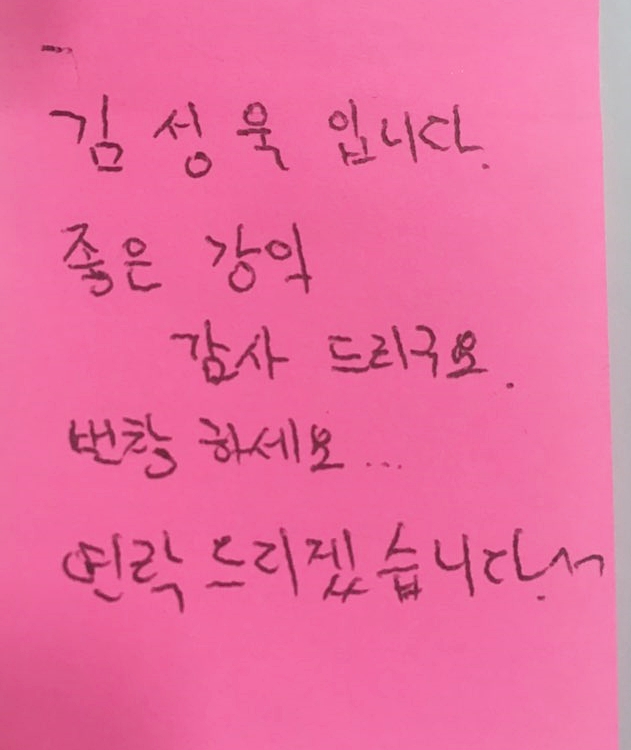 김성욱 입니다.
좋은 강의
감사 드리구요.
번창 하세요...
연락 드리겠습니다.^^